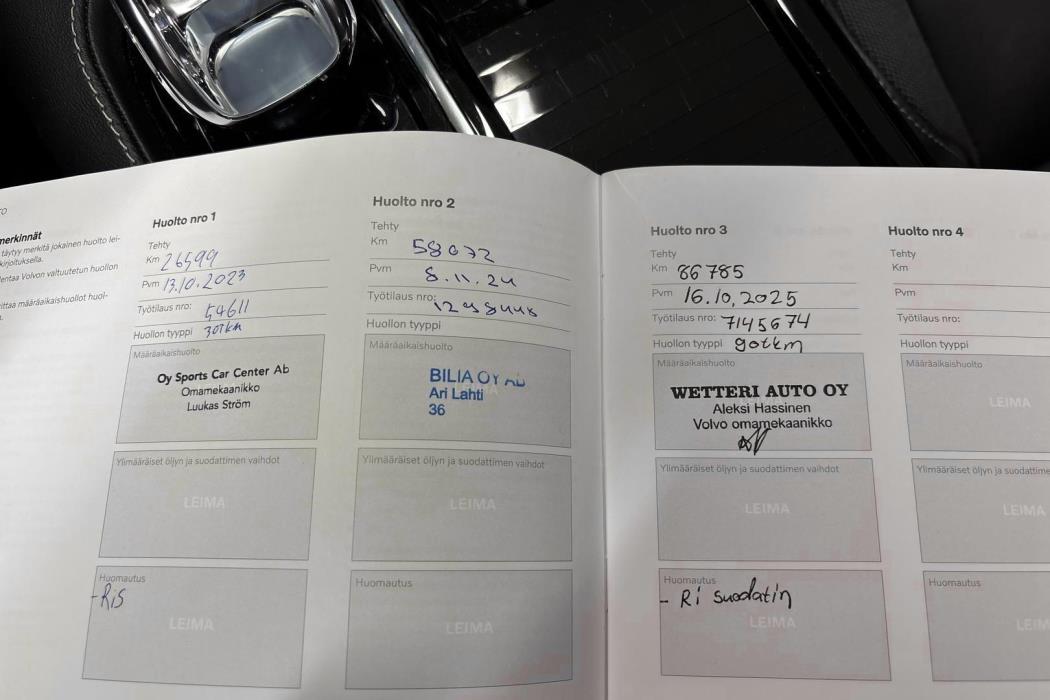 merkinnät
täytyy merkitä jokainen huolto lei-
kirjoituksella.
Volvon valtuutetun huollon
määräaikaishuollot huol-
Huolto nro 1
Tehty
Km 26599
Pvm 13.10.2023
Työtilaus nro: 54611
Huollon tyyppi 30tkm
Määräaikaishuolto
Oy Sports Car Center Ab
Omamekaanikko
Luukas Ström
Ylimääräiset öljyn ja suodattimen vaihdot
LEIMA
Huomautus
-Ris
LEIMA
Huolto nro 2
Tehty
Km 58072
Pvm 8.11.24
Työtilaus nro:
Huollon tyyppi
Määräaikaishuolto
BILIA OY AB
Ari Lahti
36
Ylimääräiset öljyn ja suodattimen vaihdot
LEIMA
Huomautus
LEIMA
Huolto nro 3
Tehty
Km 86785
Pvm 16.10.2025
Työtilaus nro: 7145674
Huollon tyyppi 90tkm
Määräaikaishuolto
WETTERI AUTO OY
Aleksi Hassinen
Volvo omamekaanikko
Ylimääräiset öljyn ja suodattimen vaihdot
LEIMA
Huomautus
- Ri suodatin
LEIMA
Huolto nro 4
Tehty
Km
Pvm
Työtilaus nro:
Huollon tyyppi
Määräaikaishuolto
LEIMA
Ylimääräiset öljyn ja suodattime
LEIMA
Huomautus
LEIM